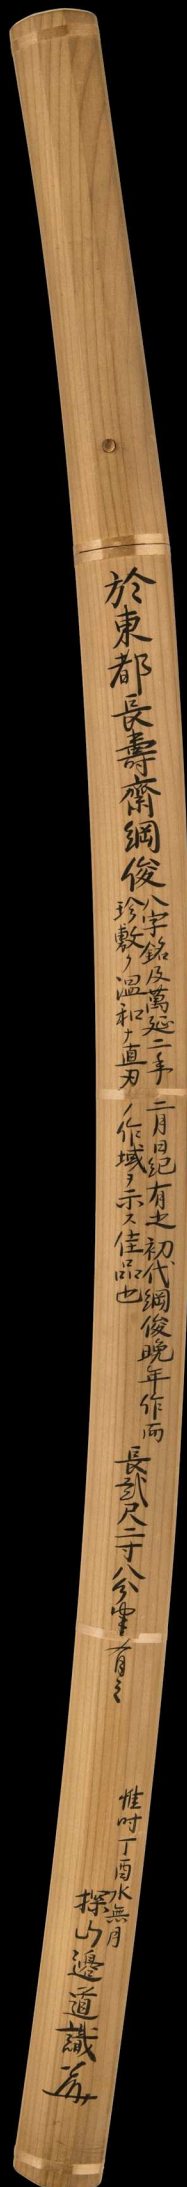 於東都長壽齋綱俊
八字銘及萬延二年二月日紀有之初代綱俊晩年作而
珍敷ク温和ナ直刃ノ作域ヲ示ス佳品也
長貳尺二寸八分半有之
惟时丁酉水無月
探山邉道識